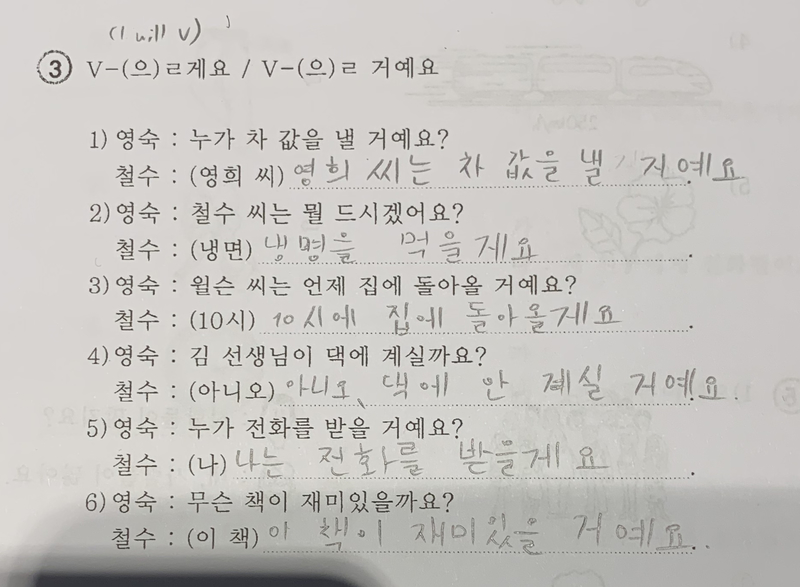 (I will V)
③ V-(으)ㄹ게요 / V-(으)ㄹ 거예요
1) 영숙 : 누가 차 값을 낼 거예요?
철수 : (영희 씨) 영희 씨는 차 값을 낼 거예요.
2) 영숙 : 철수 씨는 뭘 드시겠어요?
철수 : (냉면) 냉명을 먹을게요.
3) 영숙 : 윌슨 씨는 언제 집에 돌아올 거예요?
철수 : (10시) 10시에 집에 돌아올게요.
4) 영숙 : 김 선생님이 댁에 계실까요?
철수 : (아니오) 아니오, 댁에 안 계실 거예요.
5) 영숙 : 누가 전화를 받을 거예요?
철수 : (나) 나는 전화를 받을게요.
6) 영숙 : 무슨 책이 재미있을까요?
철수 : (이 책) 이 책이 재미있을 거예요.